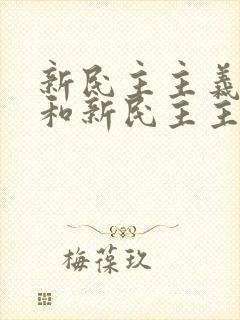 新民主主義
和新民主主
梅葆玖